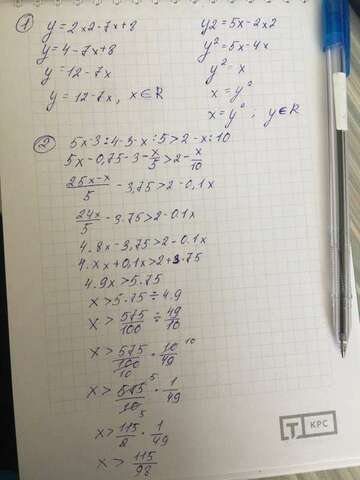 ① y=2x2-7x+8
y=4-7x+8
y=12-7x
y=12-7x, x∈R
y2=5x-2x2
y²=5x-4x
y²=x
x=y²
x=y²; y∈R
② 5x-3:4-3-x:5>2-x:10
5x-0,75-3-x/5>2-x/10
25x-x/5-3,75>2-0.1x
24x/5-3.75>2-0.1x
4.8x-3,75>2-0.1x
4.xx+0,1x>2+3.75
4.9x>5.75
x>5.75÷4.9
x>575/100÷49/10
x>575/100 10·10/49 10
x>575/10 5 5·1/49
x>115/2·1/49
x>115/98
T КРС